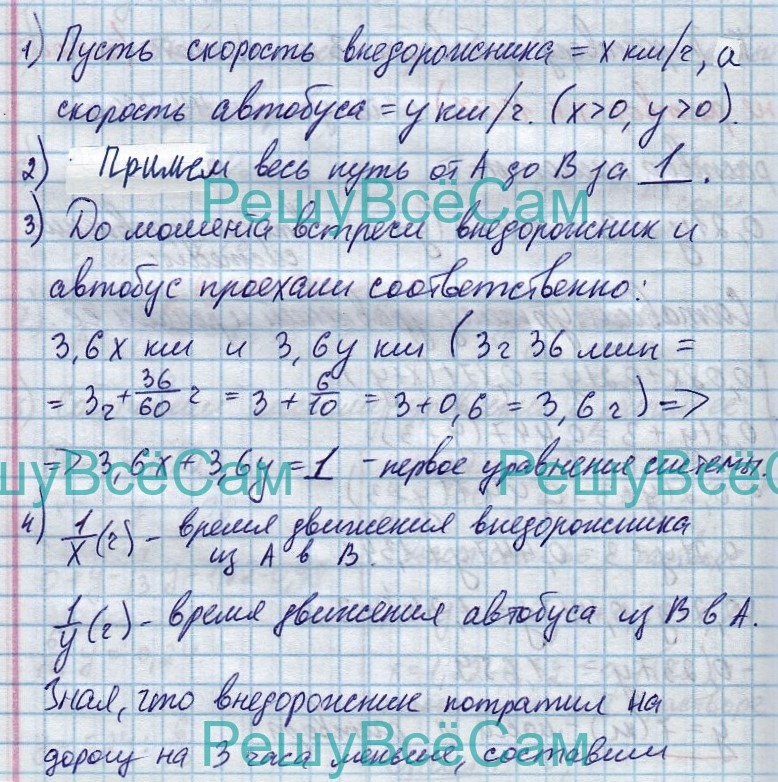 1) Пусть скорость внедорожника = x км/ч, а
скорость автобуса = y км/ч. (x>0, y>0).
2) Примем весь путь от A до B за 1.
РешуВсёСам
3) До момента встречи внедорожник и
автобус проехали соответственно:
3,6x км и 3,6y км (3ч 36 мин =
= 3ч + 36/60 ч = 3 + 6/10 = 3+0,6 = 3,6 ч) =>
=> 3,6x + 3,6y = 1 - первое уравнение системы.
РешуВсёСам РешуВсёСам
4) 1/x (ч) - время движения внедорожника
из A в B.
1/y (ч) - время движения автобуса из B в A.
Зная, что внедорожник потратил на
дорогу на 3 часа меньше, составим
РешуВсёСам